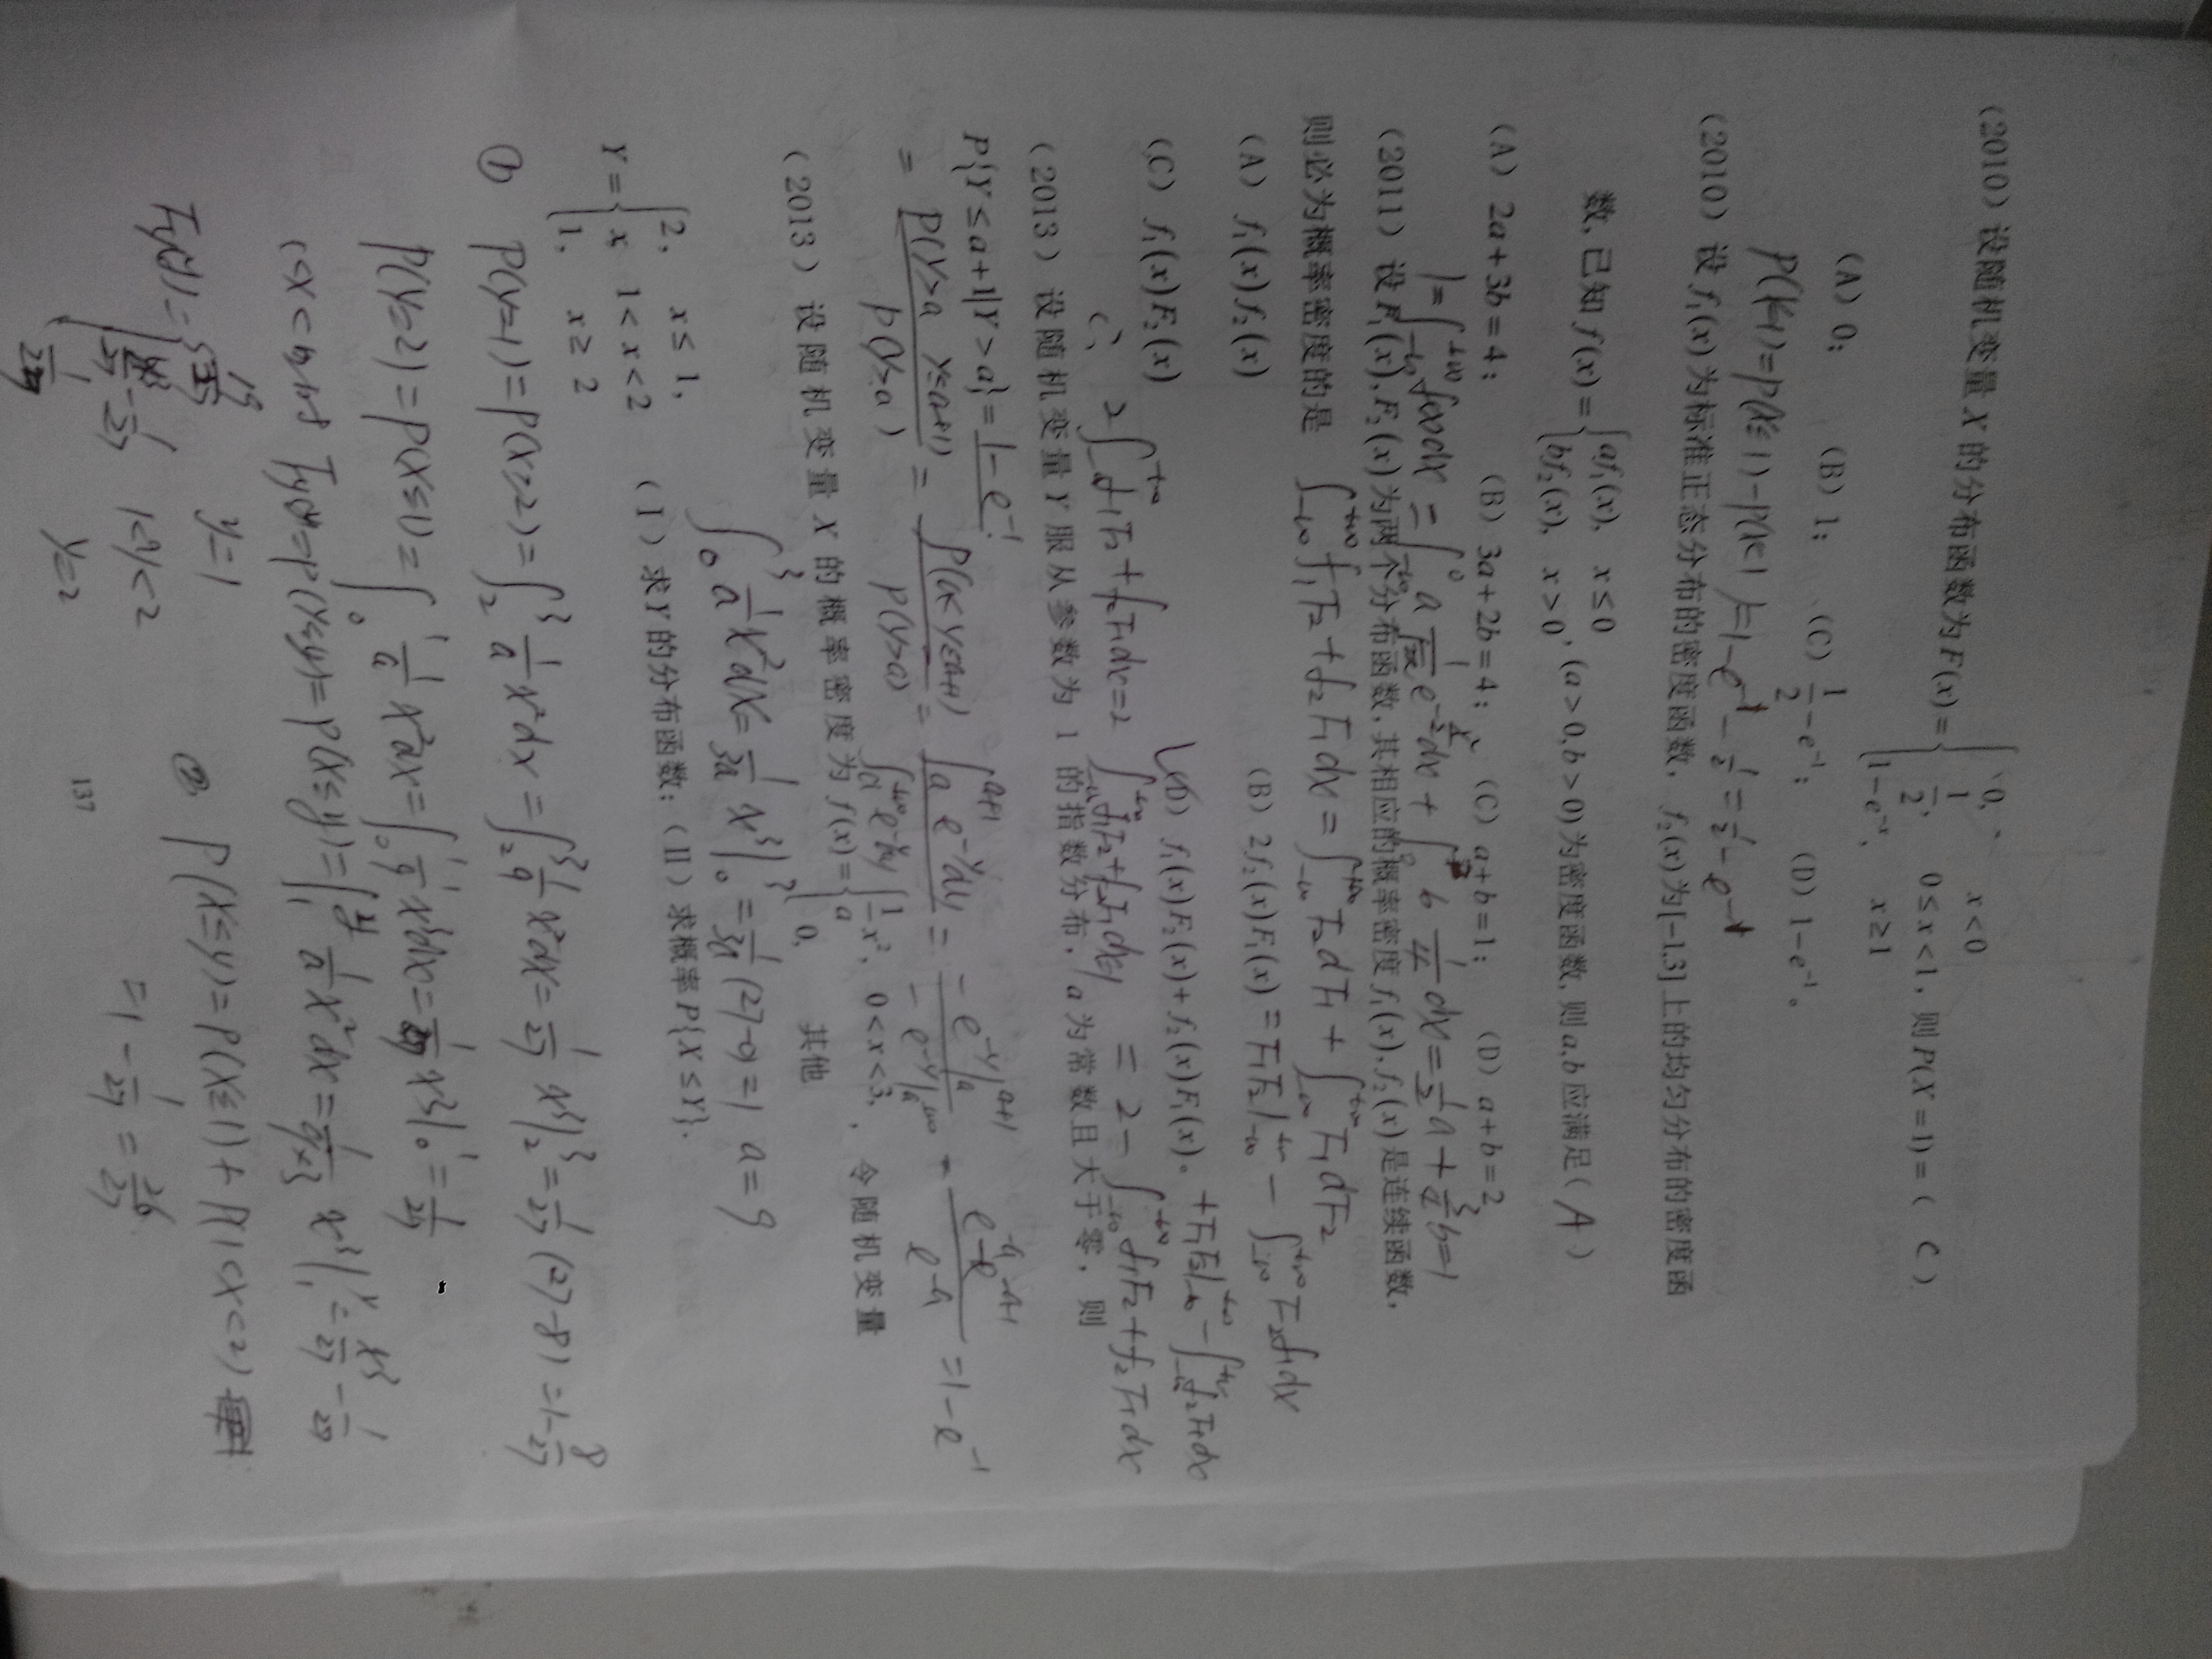 (2010) 设随机变量 X 的分布函数为 F(x) = { 0, x<0
1/2, 0≤x<1, 则 P(X=1)=( C ).
1-e^{-x}, x≥1
(A) 0; (B) 1; (C) 1/2 - e^{-1}; (D) 1-e^{-1}。
P(X=1)=P(X≤1)-P(X<1)=1-e^{-1}-1/2=1/2-e^{-1}
(2010) 设 f₁(x) 为标准正态分布的密度函数, f₂(x) 为[-1,3] 上的均匀分布的密度函
数, 已知 f(x) = { af₁(x), x≤0
bf₂(x), x>0, (a>0,b>0) 为密度函数, 则 a,b 应满足 ( A )
(A) 2a+3b=4; (B) 3a+2b=4; (C) a+b=1; (D) a+b=2
1=∫_{-∞}^{+∞} f(x)dx = ∫_{-∞}^{0} a 1/√2π e^{-x²/2}dx + ∫_{0}^{3} b 1/4 dx = 1/2 a + 3/4 b=1
(2011) 设 F₁(x), F₂(x) 为两个分布函数, 其相应的概率密度 f₁(x), f₂(x) 是连续函数,
则必为概率密度的是 ∫_{-∞}^{+∞} f₁F₂+f₂F₁dx = ∫_{-∞}^{+∞} F₂dF₁ + ∫_{-∞}^{+∞} F₁dF₂
(A) f₁(x)f₂(x) (B) 2f₂(x)F₁(x) = F₁F₂|_{-∞}^{+∞} - ∫_{-∞}^{+∞} F₂f₁dx
+F₁F₂|_{-∞}^{+∞} - ∫_{-∞}^{+∞} f₂F₁dx
(C) f₁(x)F₂(x) √(D) f₁(x)F₂(x)+f₂(x)F₁(x)。
= 2 - ∫_{-∞}^{+∞} f₁F₂+f₂F₁dx
2∫_{-∞}^{+∞} f₁F₂+f₂F₁dx=2 ∫_{-∞}^{+∞} f₁F₂+f₂F₁dx=1
(2013) 设随机变量 Y 服从参数为 1 的指数分布, a 为常数且大于零, 则
P{Y≤a+1|Y>a}=1-e^{-1}
= P(Y>a Y≤a+1)/P(Y>a) = P(a<Y≤a+1)/P(Y>a) = ∫_{a}^{a+1} e^{-y}dy/∫_{a}^{+∞} e^{-y}dy = -e^{-y}|_{a}^{a+1}/-e^{-y}|_{a}^{+∞} = e^{-a}-e^{-a-1}/e^{-a} = 1-e^{-1}
(2013) 设随机变量 X 的概率密度为 f(x) = { 1/a x², 0<x<3, , 令随机变量
0, 其他
Y = { 2, x≤1,
x 1<x<2
1, x≥2
∫_{0}^{3} 1/a x²dx = 1/3a x³|_{0}^{3} = 1/3a (27-0)=1 a=9
(I) 求 Y 的分布函数; (II) 求概率 P{X≤Y}.
① P(Y=1)=P(X≥2)=∫_{2}^{3} 1/a x²dx = ∫_{2}^{3} 1/9 x²dx = 1/27 x³|_{2}^{3} = 1/27 (27-8) = 1-8/27
P(Y=2)=P(X≤1)=∫_{0}^{1} 1/a x²dx = ∫_{0}^{1} 1/9 x²dx = 1/27 x³|_{0}^{1} = 1/27
F_Y(y)=P(Y≤y)=P(X≤y)=∫_{1}^{y} 1/a x²dx = 1/9×3 x³|_{1}^{y} = x³/27 - 1/27
F_Y(y) = { 19/27 y=1
- 1/27 1<y<2
1/27 y=2
② P(X≤Y)=P(X≤1)+P(1<X<2)
=1-1/27=26/27
137